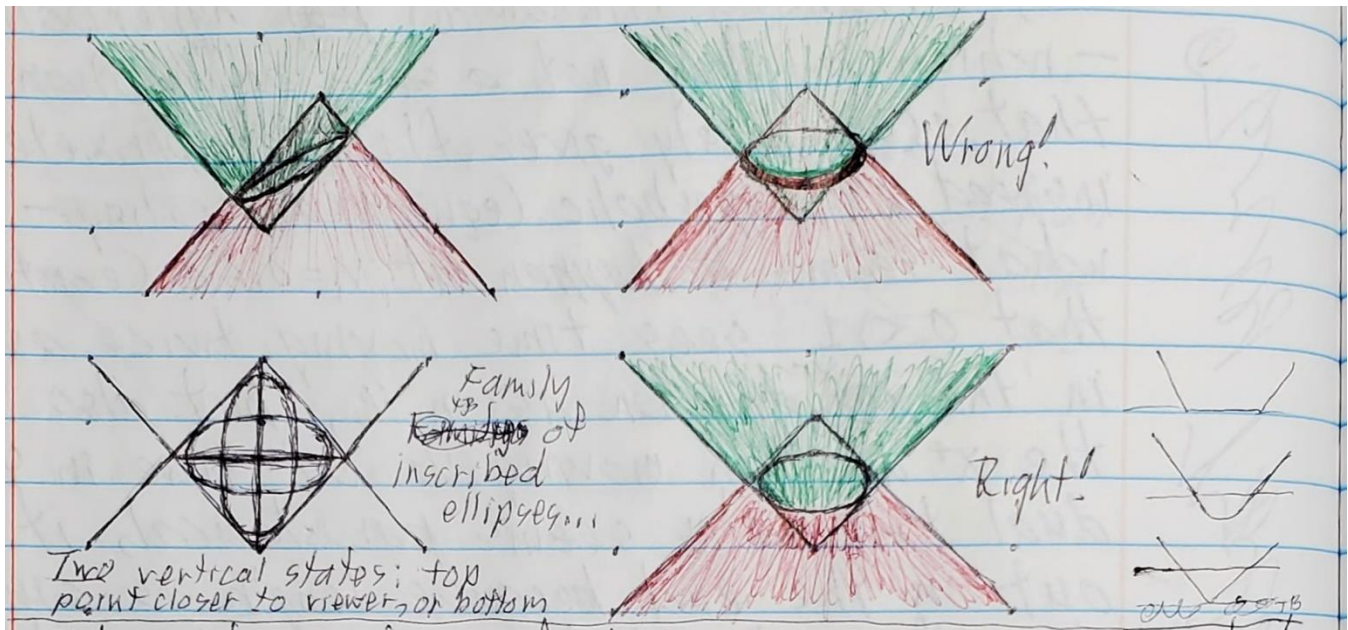 Wrong!
Family
of
inscribed
ellipses...
Right!
Two vertical states: top
point closer to viewer, or bottom